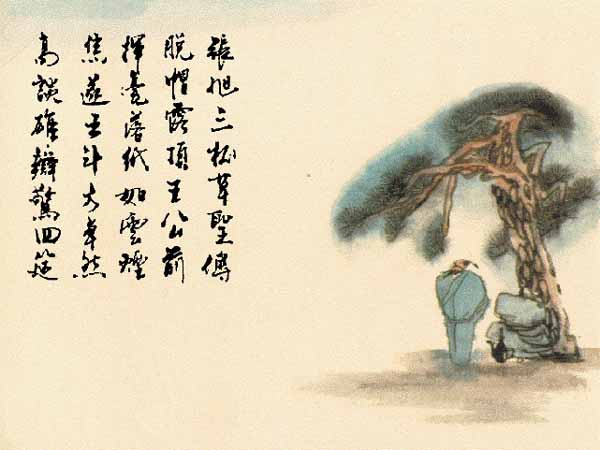 張旭三杯草聖傳
脱帽露頂王公前
揮毫落紙如雲煙
焦遂五斗方卓然
高談雄辯驚四筵